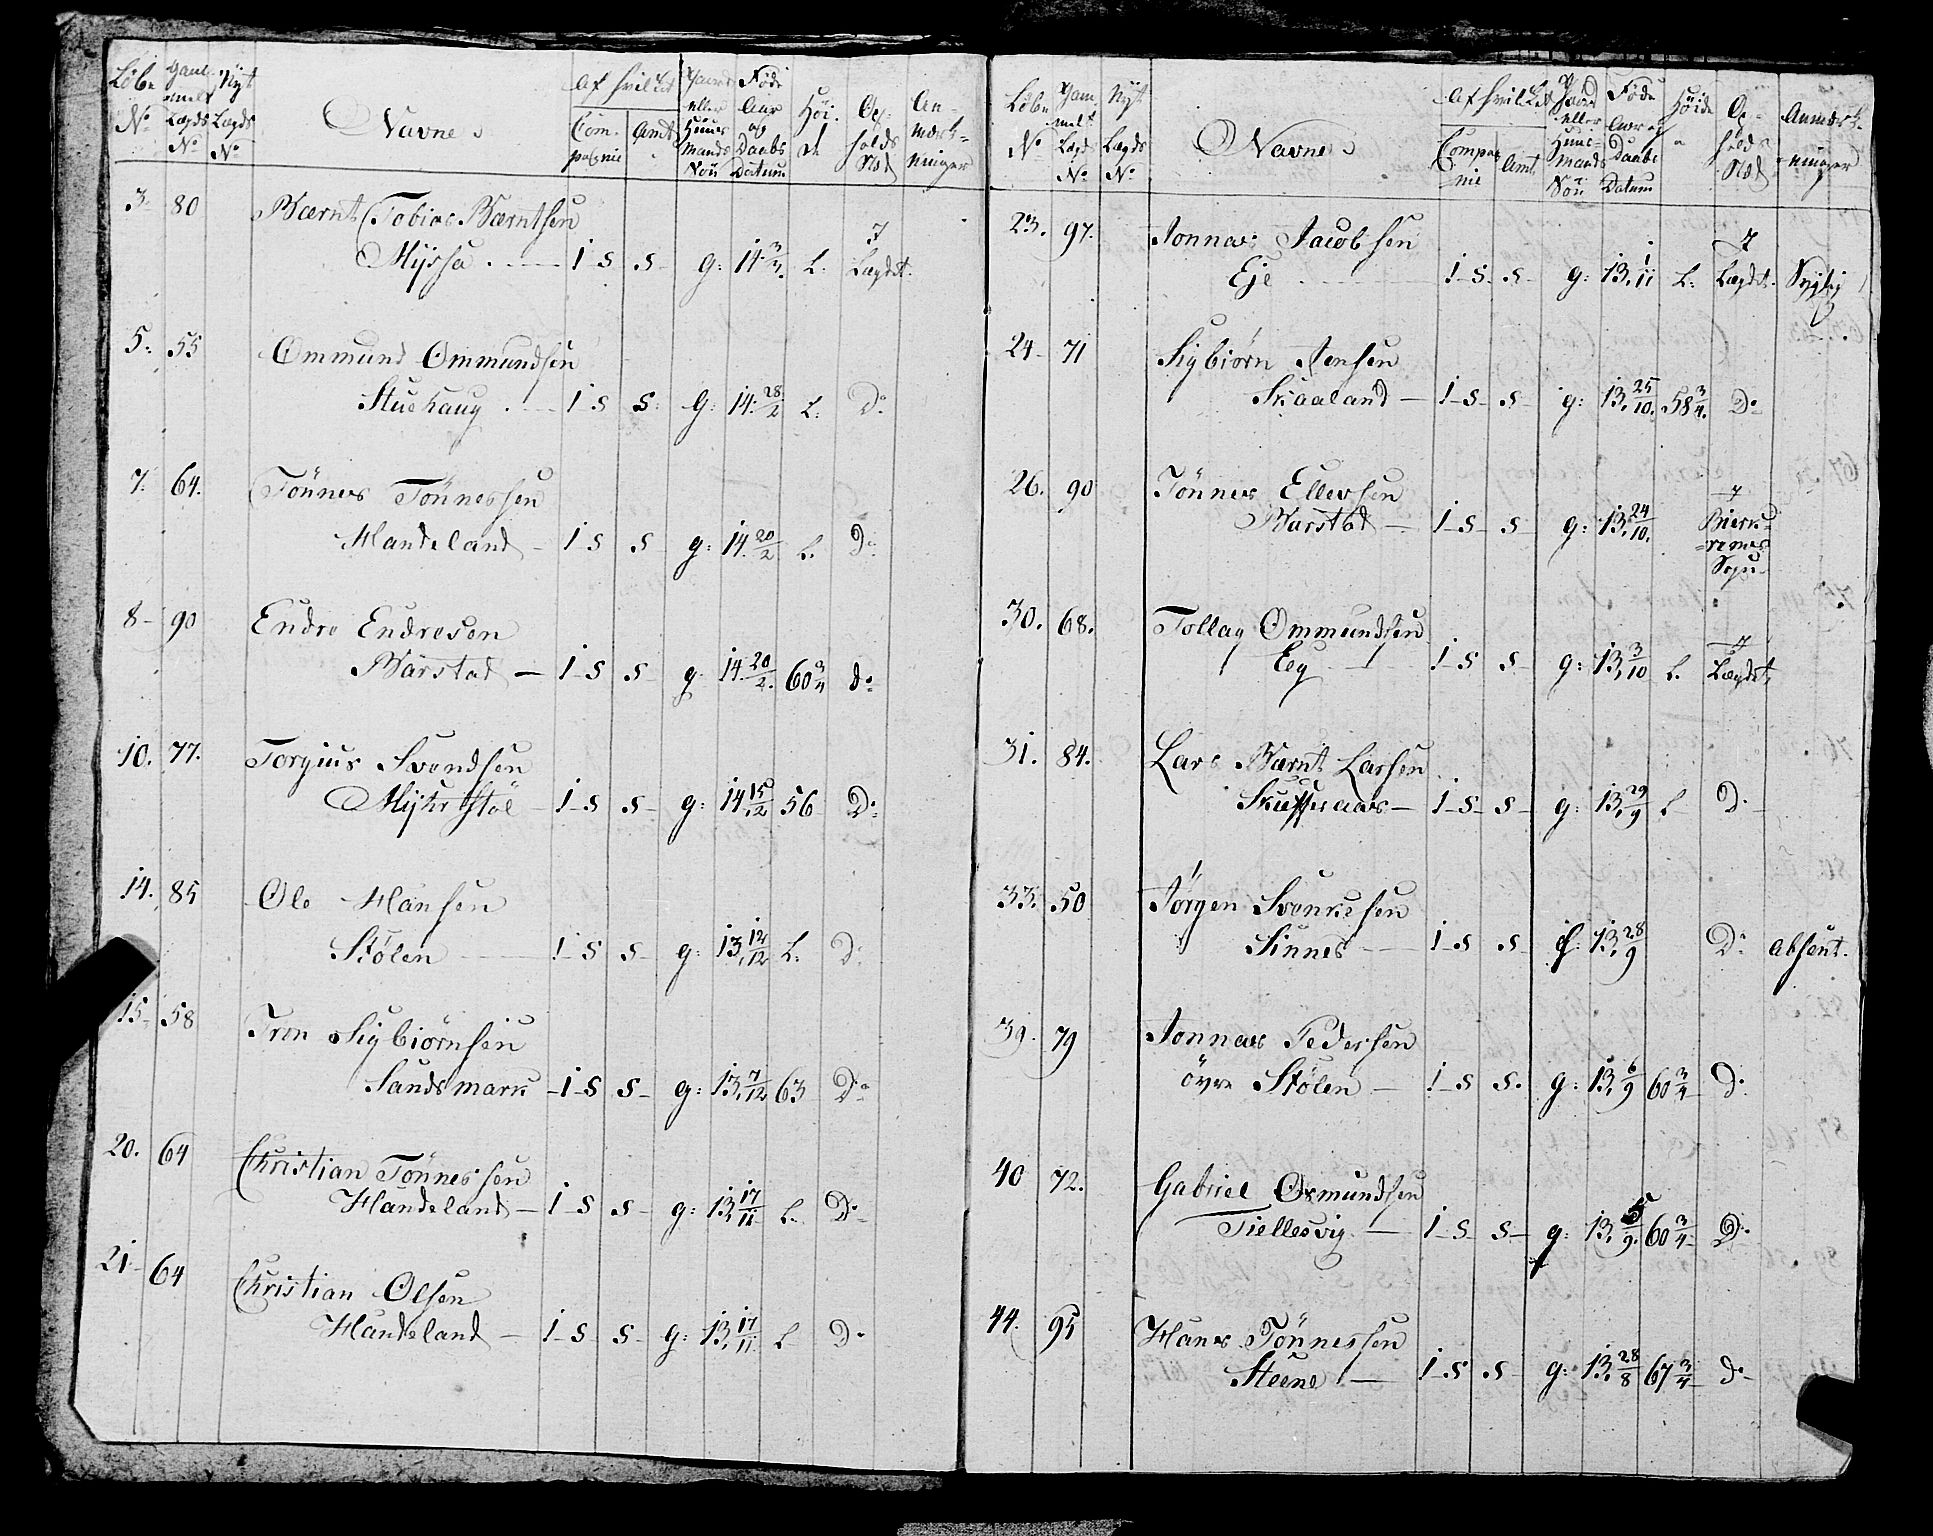 Löbe No | Gammelt Lægds No | Nÿt Lægds No | Navne | Af hvilket Compagnie | Amt | Gaard eller Huusmands Sön | Föde Aar og Daabs Datum | Höide | Opholds Sted | Anmærkninger
3. 80 Bærnt Tobias Bærntsen
Myssa 1 S S g: 14 3/3. L: I Lægdet.
5. 55 Ommund Ommundsen
Stuehaug 1 S S g: 14. 28/2 L: Do
7. 64. Tönnes Tönnessen
Handeland 1 S S g: 14. 20/2 L. Do
8 90 Endre Endresen
Barstad 1 S S g. 14. 20/2. 60 3/4 do
10. 77. Torgius Svendsen
Mykrstöl 1 S S g: 14 15/2 56 Do
14. 85 Ole Hansen
Stølen 1 S S g: 13. 12/12 L. D.
15 58 Tron Sigbiörnsen
Sandsmark 1 S S g: 13. 7/12 63 Do
20. 64 Christian Tönnessen
Handeland 1 S S g: 13. 17/11 L. D.
21 64 Christian Olsen
Handeland 1 S S g: 13. 17/11 L D.
Löbe No | Gammelt Lægds No | Nÿt Lægds No | Navne | Af hvilket Compagnie | Amt | Gaard eller Huusmands Sön | Föde Aar og Daabs Datum | Höide | Opholds Sted | Anmærkninger
23. 97. Jonnas Jacobsen
Eje 1 S S g: 13. 1/11 L. I Lægdet. Svglig
24 71 Sigbiörn Jensen
Skaaland 1 S S g: 13. 25/10. 58 3/4. Do
26. 90 Tönnes Ellevsen
Barstad 1 S S g: 13. 24/10. I Bierkremes Sogn
30. 68. Tollag Ommundsen
Eeg 1 S S g: 13. 3/10 L. I Lægdet.
31. 84. Lars Bærnt Larsen
1 S S g: 13. 29/9 L D.
33. 50 Jörgen Svenkesen
Sinnes 1 S S 13. 28/9 Do absent.
39. 79 Jonnas Pedersen
övre Stølen 1 S S. g: 13. 6/9 60 3/4 D.
40 72. Gabriel Osmundsen
Tiellesvig 1 S S g: 13. 5/9. 60 3/4 D.
44. 95 Hans Tönnessen
Steene 1 S S g: 13. 28/8 67 3/4 do